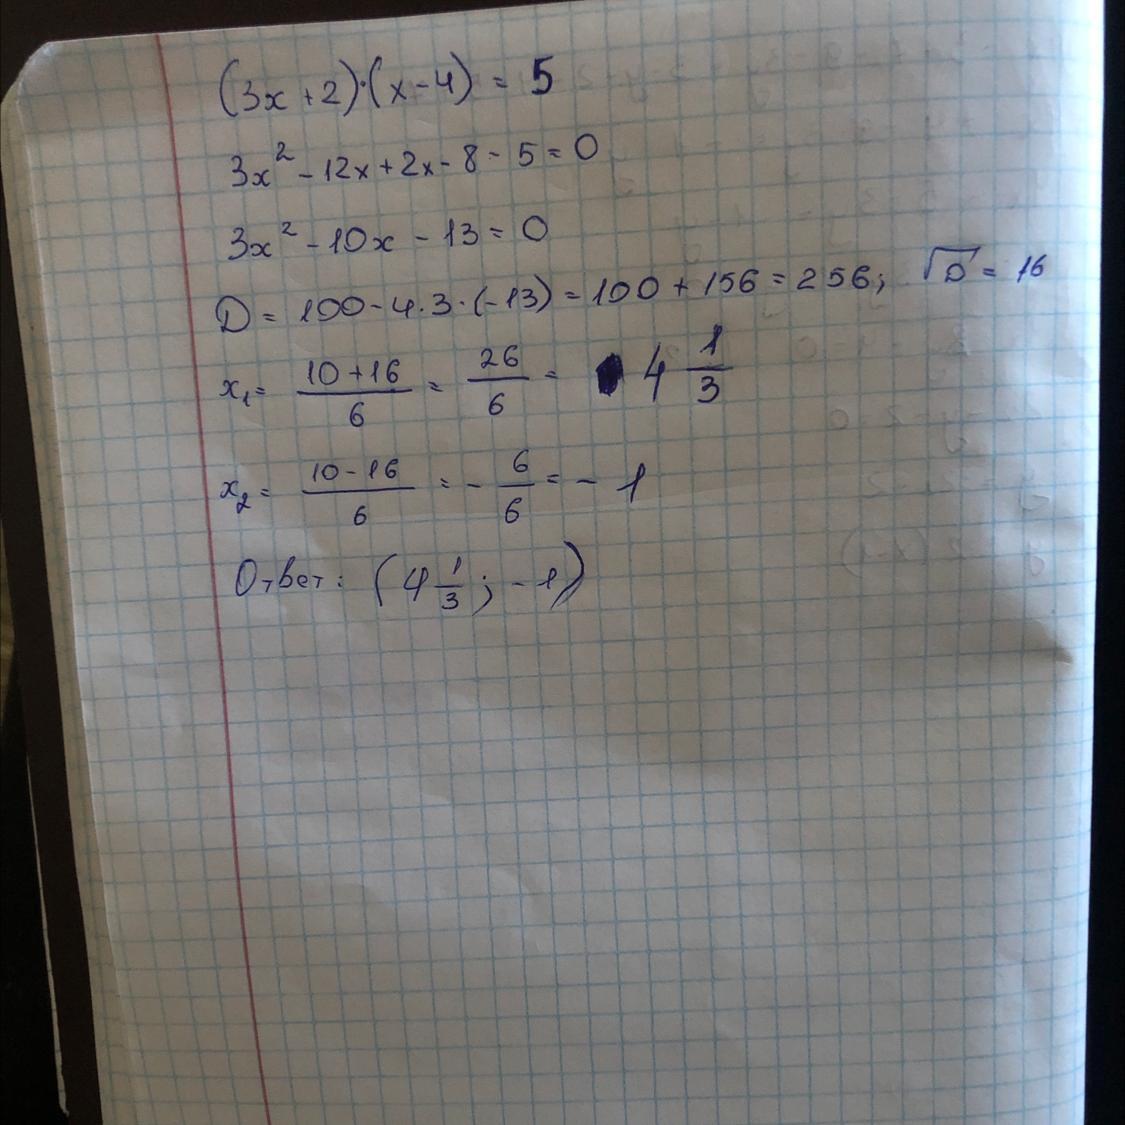 (3x+2)·(x-4) = 5
3x² - 12x + 2x - 8 - 5 = 0
3x² - 10x - 13 = 0
D = 100 - 4·3·(-13) = 100 + 156 = 256; √D = 16
x₁ = (10+16)/6 = 26/6 = 4 1/3
x₂ = (10-16)/6 = - 6/6 = - 1
Ответ: (4 1/3; -1)